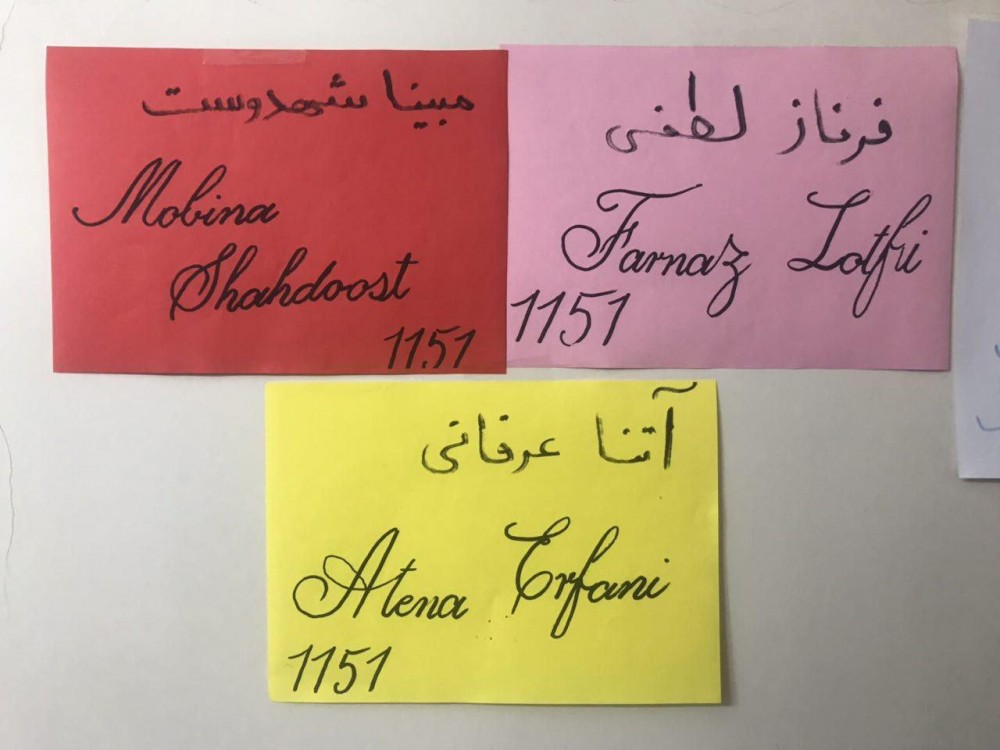 مبینا شهدوست
Mobina
Shahdoost
1151
فرناز لطفی
Farnaz Lotfii
1151
آتنا عرفانی
Atena Erfani
1151